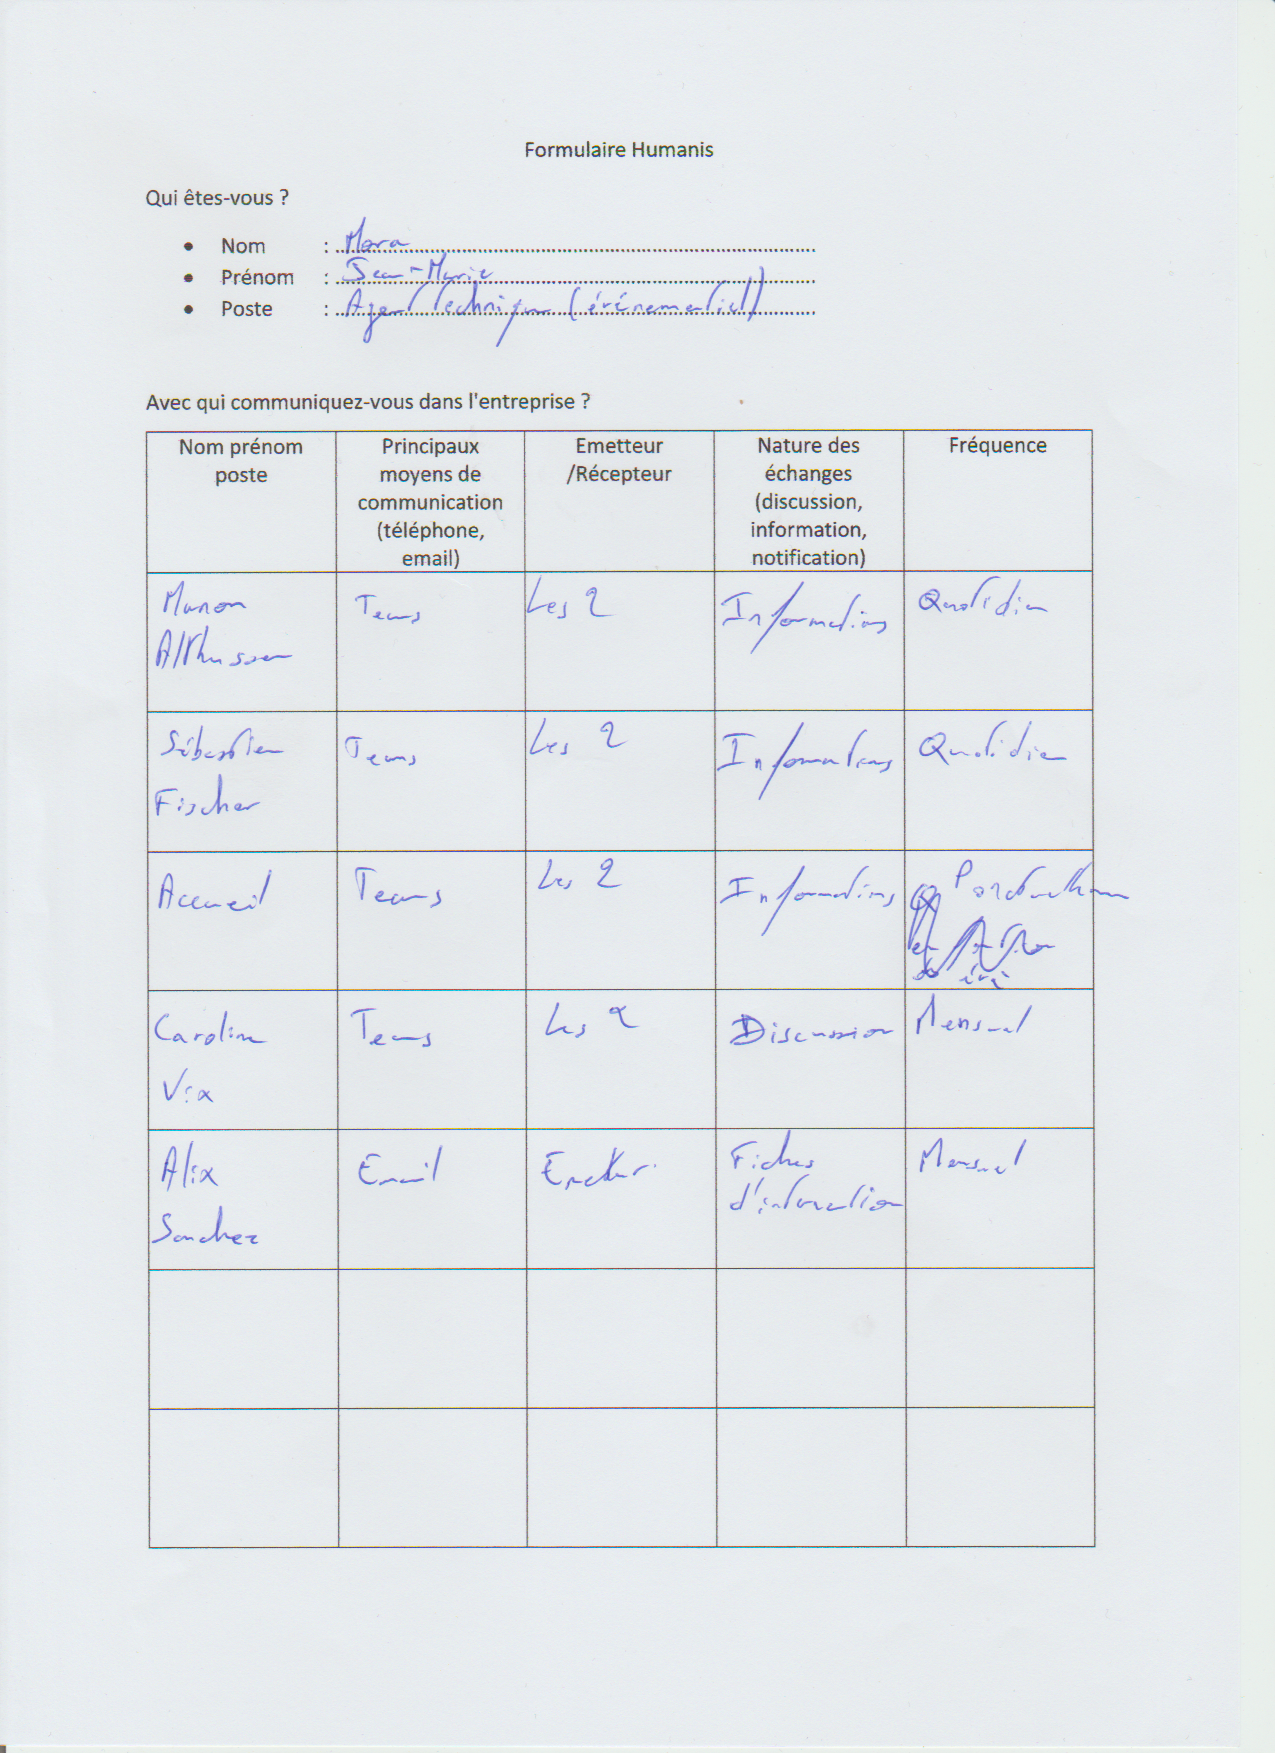 Formulaire Humanis
Qui êtes-vous ?
• Nom : Mora
• Prénom : Jean-Marie
• Poste : Agent Technique (événementiel)
Avec qui communiquez-vous dans l'entreprise ?
Nom prénom
poste
Principaux
moyens de
communication
(téléphone,
email)
Emetteur
/Récepteur
Nature des
échanges
(discussion,
information,
notification)
Fréquence
Manon
Althusser
Teams
Les 2
Informations
Quotidien
Sébastien
Fischer
Teams
Les 2
Informations
Quotidien
Accueil
Teams
Les 2
Informations
Caroline
Vix
Teams
Les 2
Discussion
Mensuel
Alix
Sanchez
Email
Emetteur
Fiches
d'information
Mensuel